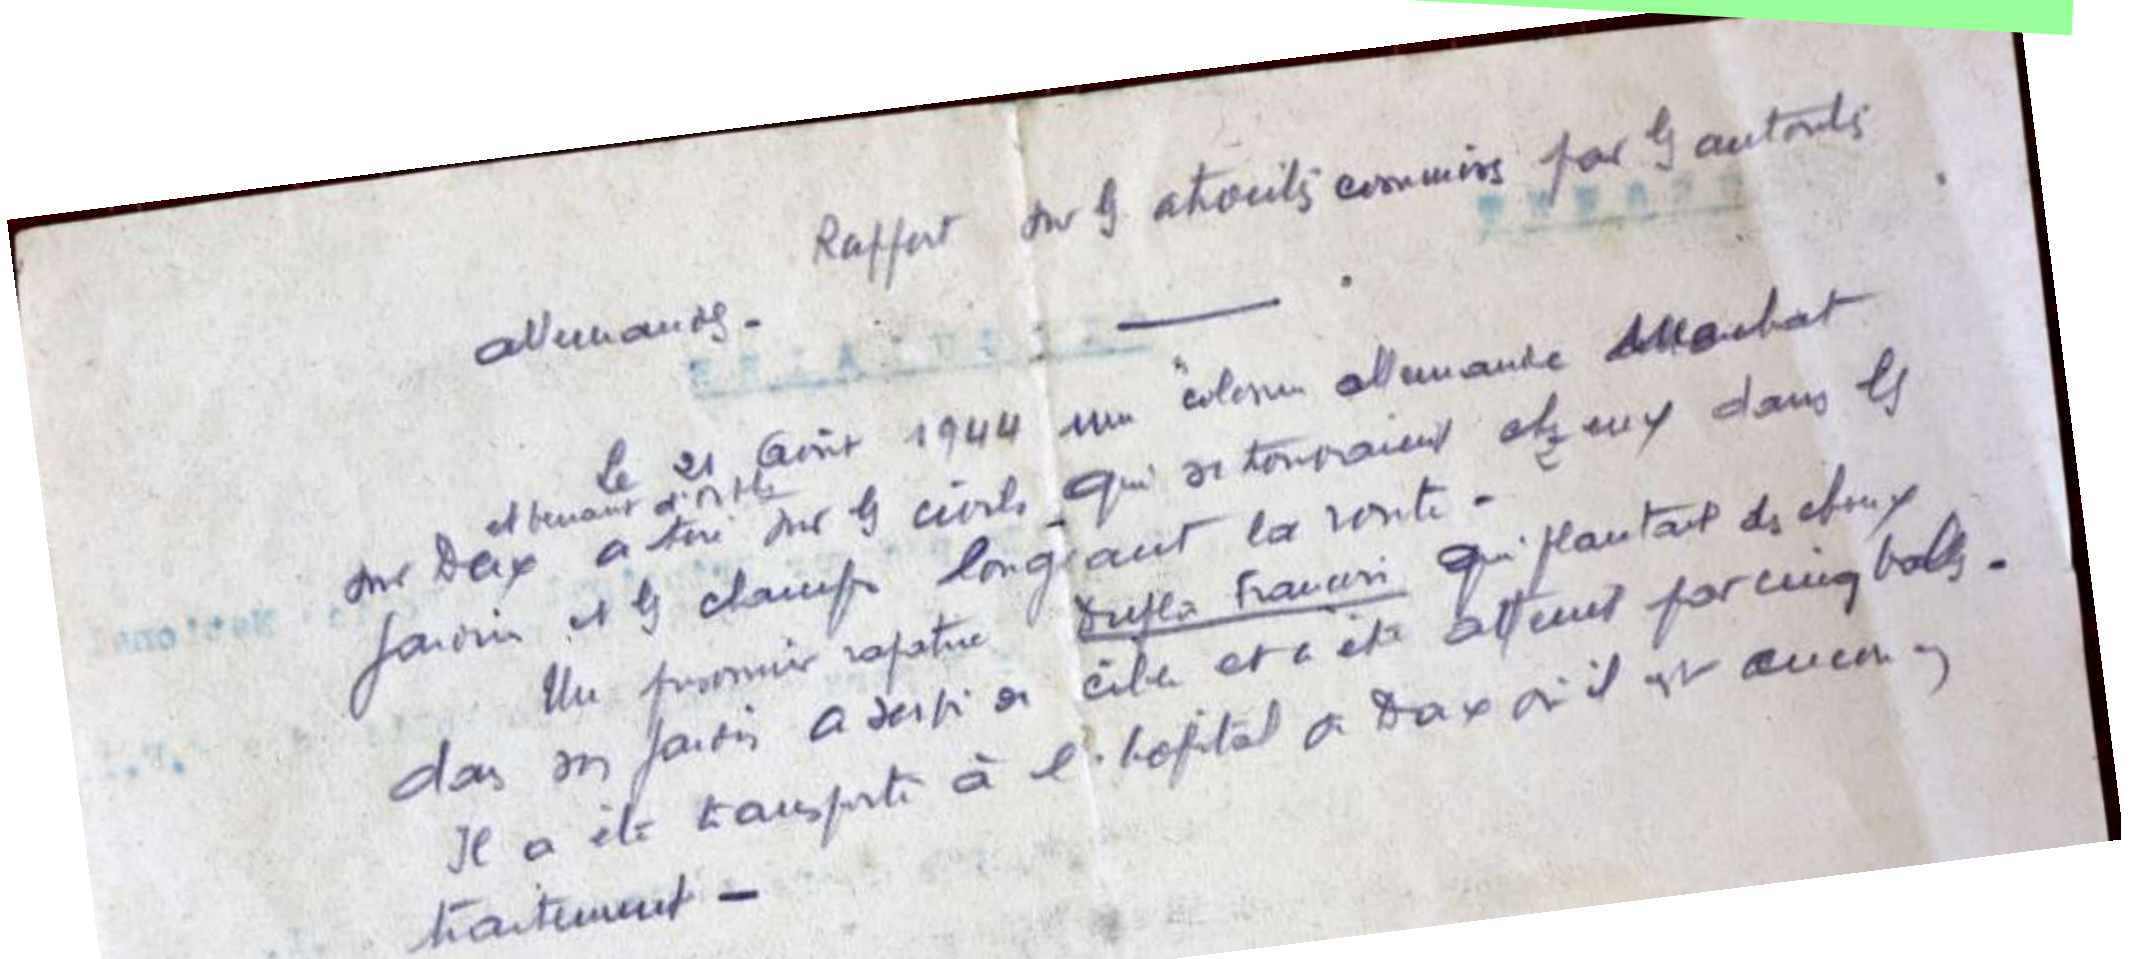 Rapport sur les atrocités commises par les autorités
allemandes.
Le 21 Août 1944 une colonne allemande marchant
et venant d'Orthez
sur Dax a tiré sur les civils qui se trouvaient chez eux dans les
jardins et les champs longeant la route -
Un prisonnier rapatrié François qui plantait des choux
dans son jardin a servi de cible et a été atteint par cinq balles -
Il a été transporté à l'hôpital de Dax où il est encore en
traitement -